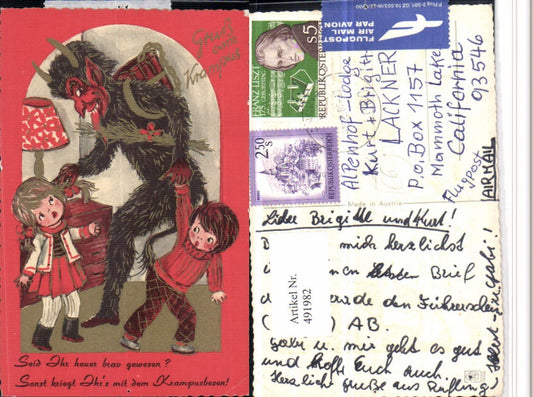 Gruß
vom
Krampus
Seid Ihr heuer brav gewesen?
Sonst kriegt Ihr's mit dem Krampusbesen!
FLUGPOST
AIR MAIL
PAR AVION
S5
FRANZ LISZT
175. GEBURTSTAG
REPUBLIK ÖSTERREICH
2.50
S
REPUBLIK ÖSTERREICH
Alpenhof Lodge
Kurt + Brigitte
LACKNER
P.O. Box 11157
Mammoth Lake
California
93546
Flugpost
AIRMAIL
Made in Austria
Liebe Brigitte und Kurt!
mich herzlichst
Brief
den Führerschein
AB.
Gabi u. mir geht es gut
und hoffe Euch auch.
Herzliche Grüße aus
Artikel Nr.
491982